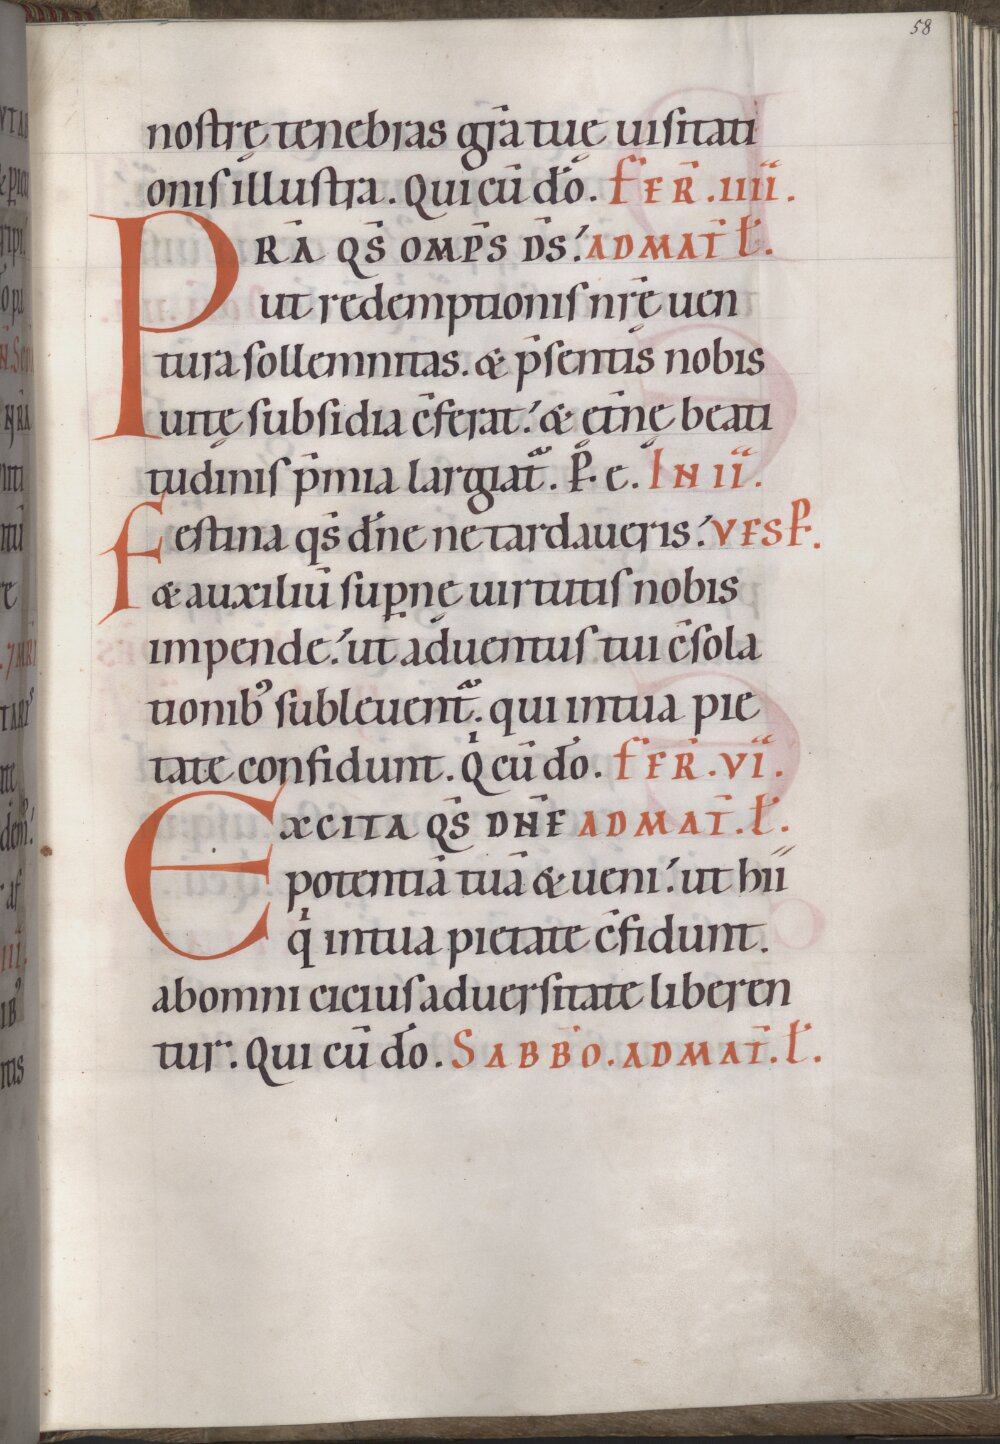 58
nostrę tenebras gr̄a tuę uisitati
onis illustra. Qui cū do̅. FER̄. IIII.
PRĀ QS̄ OMP̄S DS̄: AD MAT̄ Ł.
ut redemptionis nr̄ę uen
tura sollemnitas. & p̄sentis nobis
uitę subsidia c̄ferat: & et̄nę beati
tudinis p̄mia largiat᷑. P̄. c. IN II.
Festina qs̄ dn̄e ne tardaueris: VESP̄.
& auxiliū supnę uirtutis nobis
impende: ut aduentus tui c̄sola
tionib' subleuent᷑. qui in tua pie
tate confidunt. Q̇ cū do̅. FER̄. VI.
EXCITA QS̄ DN̄E AD MAT̄. Ł.
potentiā tuā & ueni: ut hii
q̇ in tua pietate c̄fidunt.
ab omni cicius aduersitate liberen
tur. Qui cū do̅. SABB̄O. AD MAT̄. Ł.